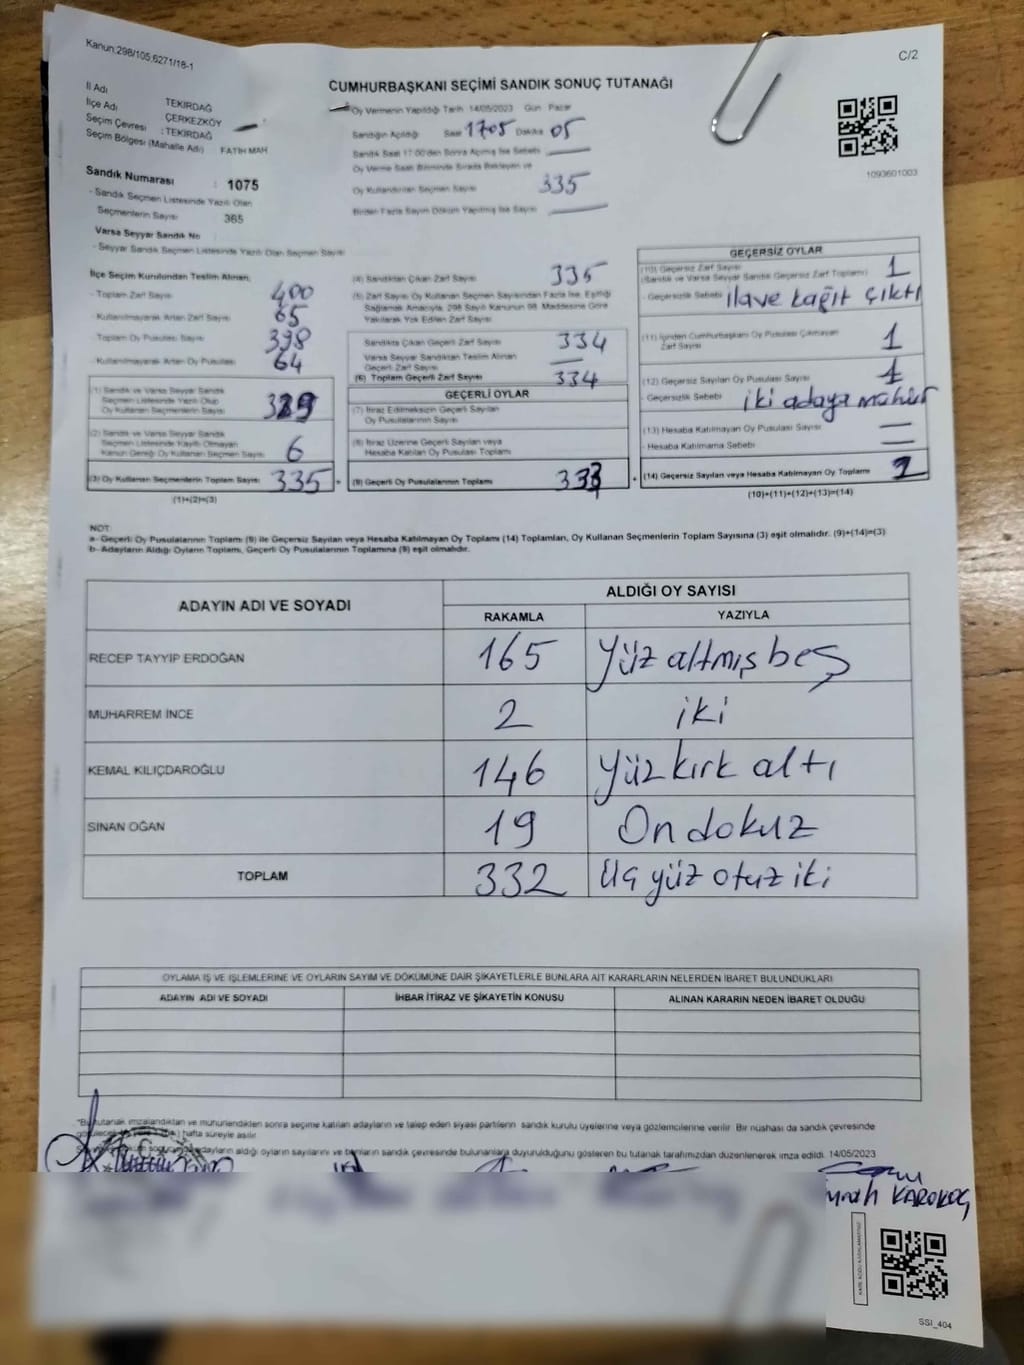 Kanun:298/105;6271/18-1
C/2
CUMHURBAŞKANI SEÇİMİ SANDIK SONUÇ TUTANAĞI
İl Adı TEKİRDAĞ
İlçe Adı ÇERKEZKÖY
Seçim Çevresi : TEKİRDAĞ
Seçim Bölgesi (Mahalle Adı) FATİH MAH
Oy Vermenin Yapıldığı Tarih 14/05/2023 Gün Pazar
Sandığın Açıldığı Saat 1705 Dakika 05
Sandık Saat 17:00'den Sonra Açılmış İse Sebebi
Oy Verme Saati Bitiminde Sırada Bekleyen ve
Oy Kullandırılan Seçmen Sayısı 335
Birden Fazla Sayım Döküm Yapılmış İse Sayısı
1093601003
Sandık Numarası : 1075
- Sandık Seçmen Listesinde Yazılı Olan
Seçmenlerin Sayısı 365
Varsa Seyyar Sandık No
- Seyyar Sandık Seçmen Listesinde Yazılı Olan Seçmen Sayısı
İlçe Seçim Kurulundan Teslim Alınan;
- Toplam Zarf Sayısı 400
- Kullanılmayarak Artan Zarf Sayısı 65
- Toplam Oy Pusulası Sayısı 398
- Kullanılmayarak Artan Oy Pusulası 64
(1) Sandık ve Varsa Seyyar Sandık
Seçmen Listesinde Yazılı Olup
Oy Kullanan Seçmenlerin Sayısı 329
(2) Sandık ve Varsa Seyyar Sandık
Seçmen Listesinde Kayıtlı Olmayan
Kanun Gereği Oy Kullanan Seçmen Sayısı 6
(3) Oy Kullanan Seçmenlerin Toplam Sayısı 335
(1)+(2)=(3)
(4) Sandıktan Çıkan Zarf Sayısı 335
(5) Zarf Sayısı Oy Kullanan Seçmen Sayısından Fazla İse, Eşitliği
Sağlamak Amacıyla, 298 Sayılı Kanunun 98. Maddesine Göre
Yakılarak Yok Edilen Zarf Sayısı
Sandıkta Çıkan Geçerli Zarf Sayısı 334
Varsa Seyyar Sandıktan Teslim Alınan
Geçerli Zarf Sayısı
(6) Toplam Geçerli Zarf Sayısı 334
GEÇERLİ OYLAR
(7) İtiraz Edilmeksizin Geçerli Sayılan
Oy Pusulalarının Sayısı
(8) İtiraz Üzerine Geçerli Sayılan veya
Hesaba Katılan Oy Pusulası Toplamı
(9) Geçerli Oy Pusulalarının Toplamı
GEÇERSİZ OYLAR
(10) Geçersiz Zarf Sayısı
(Sandık ve Varsa Seyyar Sandık Geçersiz Zarf Toplamı) 1
- Geçersizlik Sebebi ilave kağıt çıktı
(11) İçinden Cumhurbaşkanı Oy Pusulası Çıkmayan
Zarf Sayısı 1
(12) Geçersiz Sayılan Oy Pusulası Sayısı 1
- Geçersizlik Sebebi iki adaya mühür
(13) Hesaba Katılmayan Oy Pusulası Sayısı
Hesaba Katılmama Sebebi
(14) Geçersiz Sayılan veya Hesaba Katılmayan Oy Toplamı
(10)+(11)+(12)+(13)=(14)
NOT:
a- Geçerli Oy Pusulalarının Toplamı (9) ile Geçersiz Sayılan veya Hesaba Katılmayan Oy Toplamı (14) Toplamları, Oy Kullanan Seçmenlerin Toplam Sayısına (3) eşit olmalıdır. (9)+(14)=(3)
b- Adayların Aldığı Oyların Toplamı, Geçerli Oy Pusulalarının Toplamına (9) eşit olmalıdır.
ADAYIN ADI VE SOYADI
ALDIĞI OY SAYISI
RAKAMLA YAZIYLA
RECEP TAYYİP ERDOĞAN 165 Yüz altmış beş
MUHARREM İNCE 2 iki
KEMAL KILIÇDAROĞLU 146 Yüz kırk altı
SİNAN OĞAN 19 On dokuz
TOPLAM 332 Üç yüz otuz iki
OYLAMA İŞ VE İŞLEMLERİNE VE OYLARIN SAYIM VE DÖKÜMÜNE DAİR ŞİKAYETLERLE BUNLARA AİT KARARLARIN NELERDEN İBARET BULUNDUKLARI
ADAYIN ADI VE SOYADI İHBAR İTİRAZ VE ŞİKAYETİN KONUSU ALINAN KARARIN NEDEN İBARET OLDUĞU
"Bu tutanak imzalandıktan ve mühürlendikten sonra seçime katılan adayların ve talep eden siyasi partilerin sandık kurulu üyelerine veya gözlemcilerine verilir. Bir nüshası da sandık çevresinde
hafta süreyle asılır.
adayların aldığı oyların sayılarını ve bunların sandık çevresinde bulunanlara duyurulduğunu gösteren bu tutanak tarafımızdan düzenlenerek imza edildi. 14/05/2023
KAROKOÇ
SSI_404